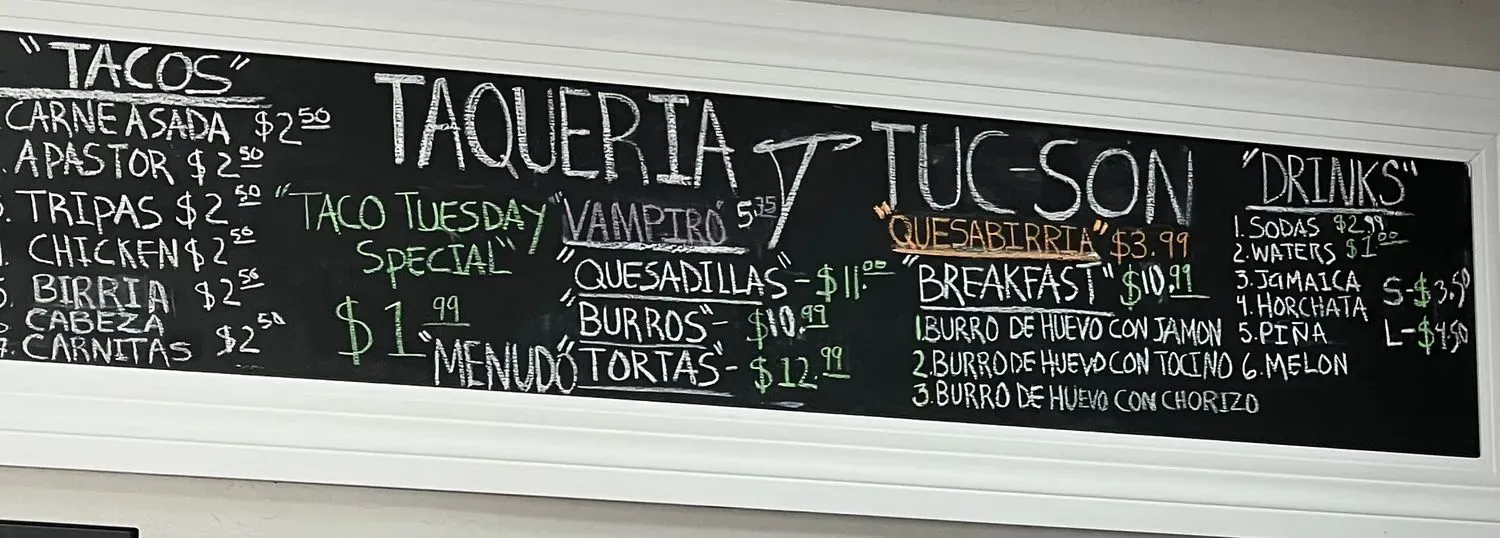 "TACOS"
CARNE ASADA $2 50
APASTOR $2 50
TRIPAS $2 50
CHICKEN $2 50
BIRRIA $2 50
CABEZA
7. CARNITAS $2 50
TAQUERIA Y TUC-SON
"TACO TUESDAY
SPECIAL"
$1 99
"MENUDO"
"VAMPIRO" 5 75
"QUESADILLAS" - $11.00
"BURROS" - $10.99
"TORTAS" - $12.99
"QUESABIRRIA" $3.99
"BREAKFAST" $10.99
1.BURRO DE HUEVO CON JAMON
2.BURRO DE HUEVO CON TOCINO
3.BURRO DE HUEVO CON CHORIZO
"DRINKS"
1. SODAS $2.99
2. WATERS $1 00
3. JAMAICA
4. HORCHATA
5. PIÑA
6. MELON
S-$3.50
L-$4.50